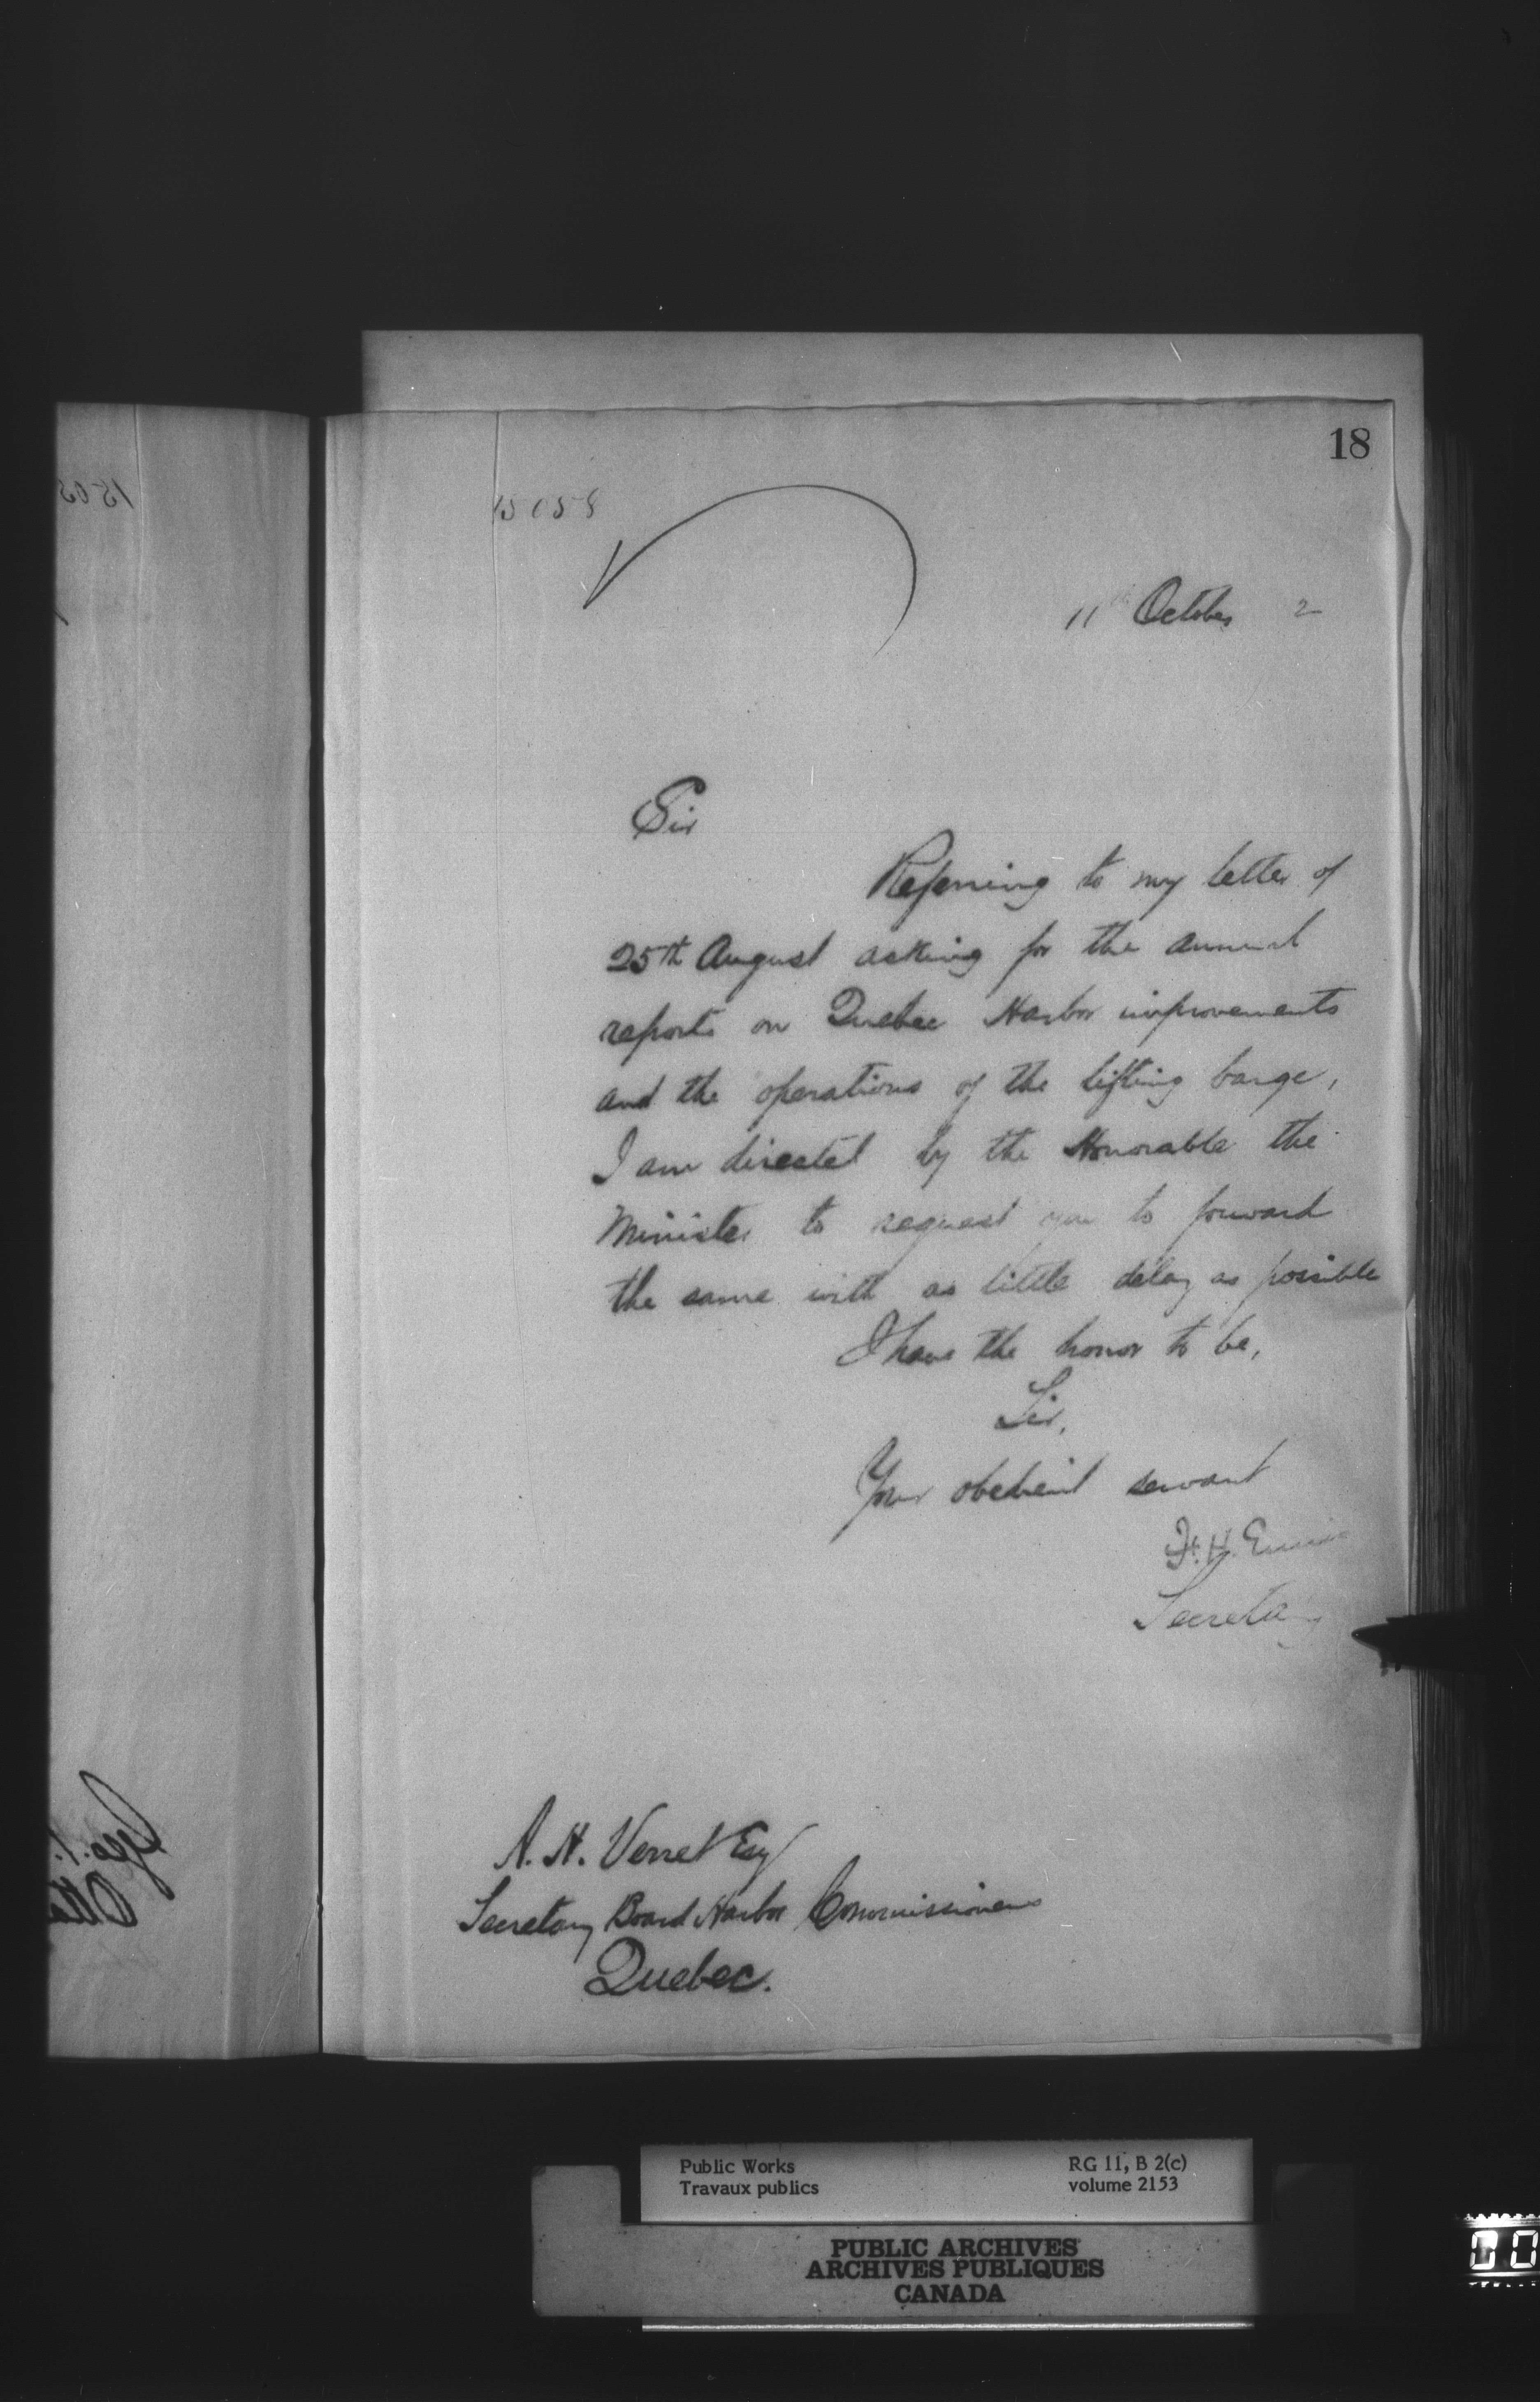 18
15058
11th October 2
Sir
Referring to my letter of
25th August asking for the annual
reports on Quebec Harbor improvements
and the operations of the lifting barge,
I am directed by the Honorable the
Minister to request you to forward
the same with as little delay as possible
I have the honor to be,
Sir,
Your obedient servant
F. H. Ennis
Secretary
A. H. Verret Esq
Secretary Board Harbor Commissioners
Quebec.
Public Works
Travaux publics
RG 11, B 2(c)
volume 2153
PUBLIC ARCHIVES
ARCHIVES PUBLIQUES
CANADA
00